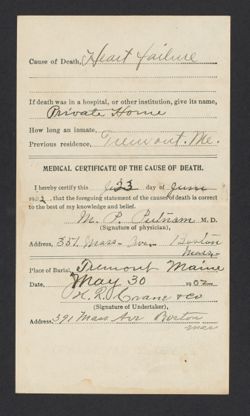 Cause of Death, Heart failure
If death was in a hospital, or other institution, give its name,
Private Home
How long an inmate,
Previous residence, Tremont, Me.
MEDICAL CERTIFICATE OF THE CAUSE OF DEATH.
I hereby certify this 23 day of June
190, that the foregoing statement of the causes of death is correct
to the best of my knowledge and belief.
M. P. Putnam M.D.
(Signature of physician),
Address, 351 Mass- Ave- Boston
Mass-
Place of Burial, Tremont Maine
Date, May 30 190
Crane & Co
(Signature of Undertaker),
Address: 391 Mass Ave Boston